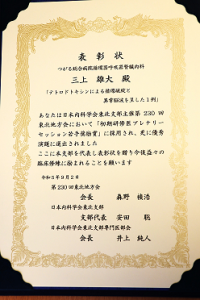 表彰状
つがる総合病院循環器呼吸器腎臓内科
三上 雄大 殿
「テトロドトキシンによる循環破綻と
異常脳波を呈した1例」
あなたは日本内科学会東北支部主催第230回
東北地方会において「初期研修医プレナリー
セッション若手奨励賞」に採用され、更に優秀
演題に選出されました
ここに本支部を代表し表彰状を贈り今後益々の
臨床修練に励まれることを願います
令和5年9月2日
第230回東北地方会
会長 森野 禎浩
日本内科学会東北支部
支部代表 安田 聡
日本内科学会東北支部専門医部会
会長 井上 純人